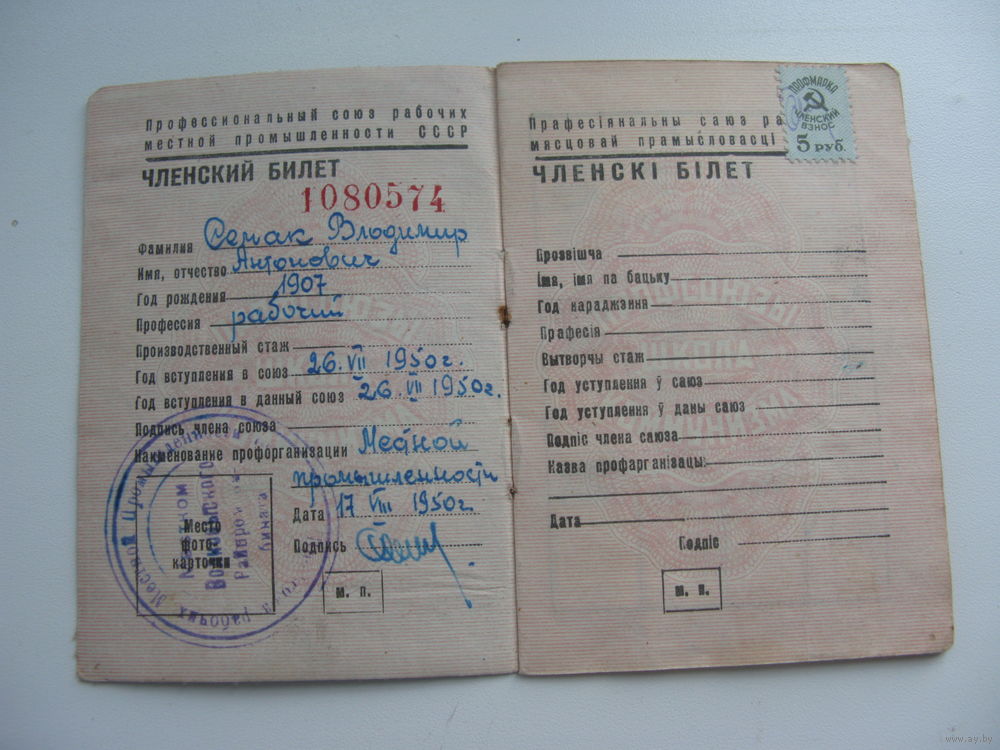 Профессиональный союз рабочих
местной промышленности СССР
ЧЛЕНСКИЙ БИЛЕТ
1080574
Фамилия Семак Владимир
Имя, отчество Антонович
Год рождения 1907
Профессия рабочий
Производственный стаж
Год вступления в союз 26.VII 1950г.
Год вступления в данный союз 26.VII 1950г.
Подпись члена союза
Наименование профорганизации Месной
промышленности
Дата 17 VIII 1950г.
Подпись
Место
фото-
карточки
м. п.
Прафесіянальны саюз ра
мясцовай прамысловасці
ЧЛЕНСКІ БІЛЕТ
ПРОФМАРКА
ЧЛЕНСКИЙ
ВЗНОС
5 РУБ.
Прозвішча
Імя, імя па бацьку
Год нараджэння
Прафесія
Вытворчы стаж
Год уступлення ў саюз
Год уступлення ў даны саюз
Подпіс члена саюза
Назва профарганізацы:
Дата
Подпіс
м. п.
www.ay.by